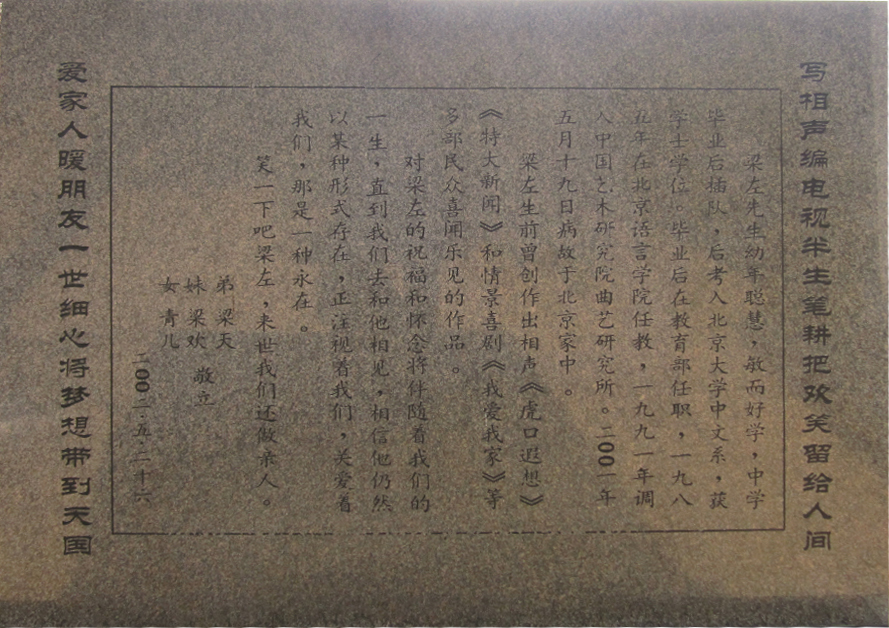 写相声编电视半生笔耕把欢笑留给人间
梁左先生幼年聪慧，敏而好学，中学
毕业后插队，后考入北京大学中文系，获
学士学位。毕业后在教育部任职，一九八
五年在北京语言学院任教，一九九一年调
入中国艺术研究院曲艺研究所。二00一年
五月十九日病故于北京家中。
梁左生前曾创作出相声《虎口遐想》
《特大新闻》和情景喜剧《我爱我家》等
多部民众喜闻乐见的作品。
对梁左的祝福和怀念将伴随着我们的
一生，直到我们去和他相见，相信他仍然
以某种形式存在，正注视着我们，关爱着
我们，那是一种永在。
笑一下吧梁左，来世我们还做亲人。
弟 梁天
妹 梁欢 敬立
女 青儿
二00二·五·二十六
爱家人暖朋友一世细心将梦想带到天国